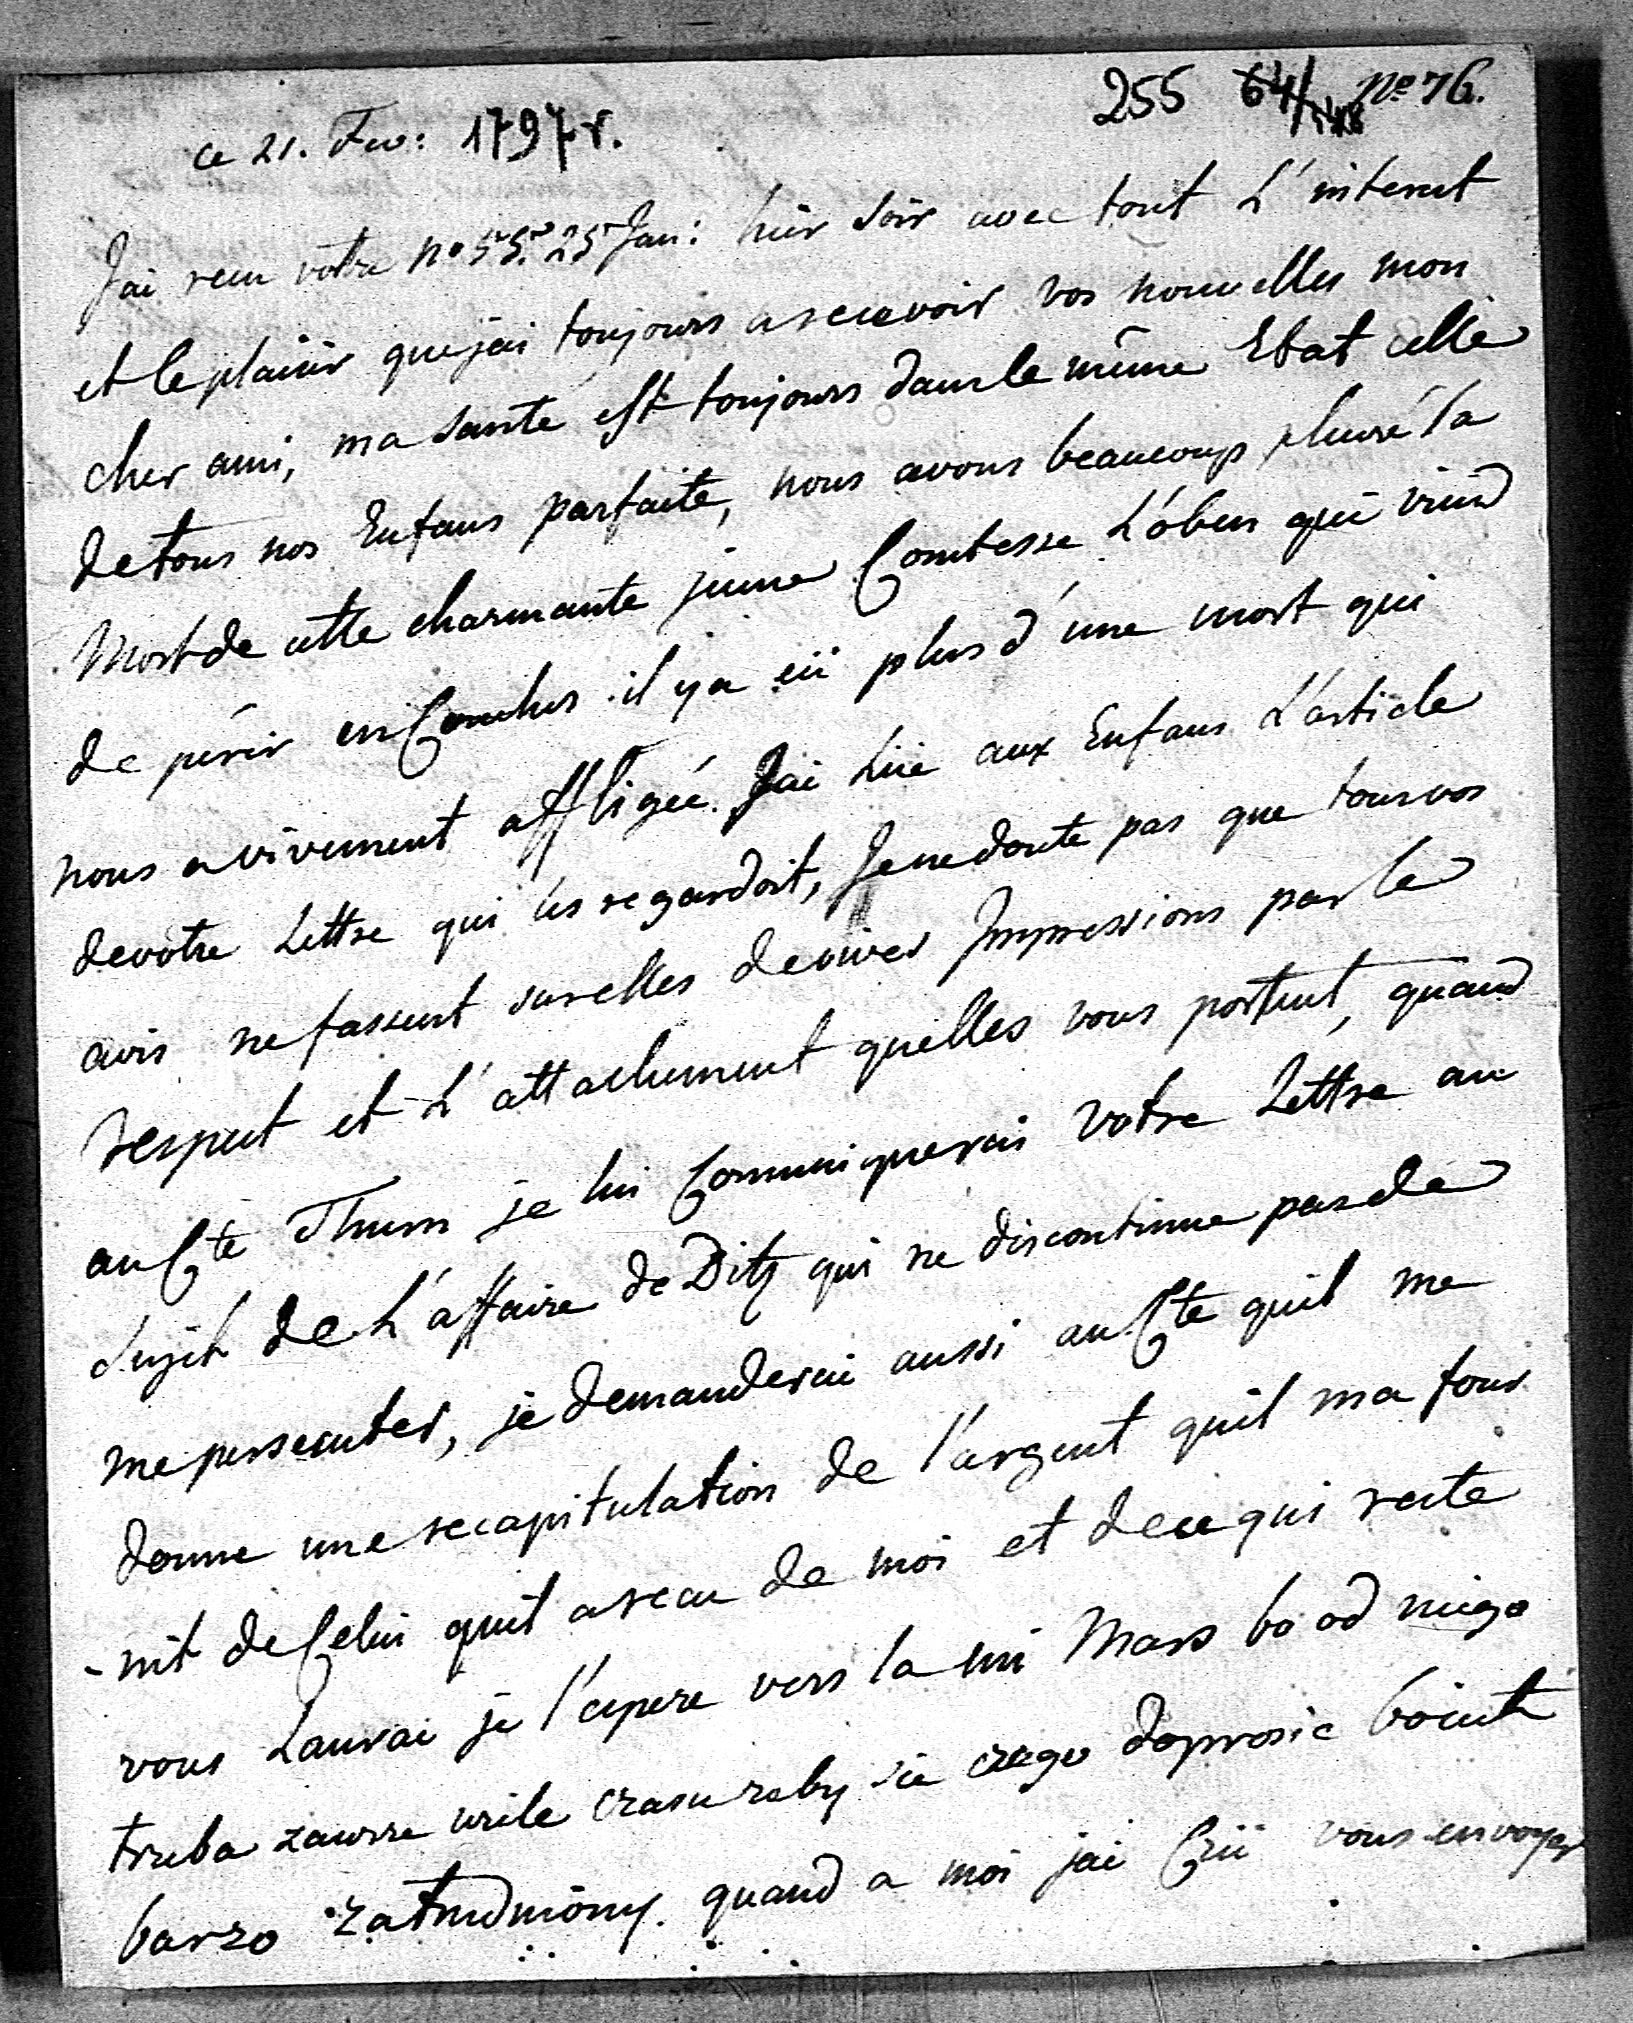 255 64/ No 76.
ce 21. Fev: 1797 r.
J'ai recu votre no 55. 25 Jan: hier soir avec tout L'interest
et le plaisir que jai toujours a recevoir vos nouvelles mon
cher ami, ma santé est toujours dans le même Etat celle
de tous nos Enfans parfaite, nous avons beaucoup pleuré la
Mort de cette charmante jeune Comtesse L'öben qui vient
de périr en Couches il y a eü plus d'une mort qui
nous a vivement affligée. J'ai lüe aux Enfans L'article
de votre Lettre qui les regardoit, Je ne doute pas que tous vos
avis ne fassent sur elles de vives Impressions par le
respect et L'attachement quelles vous portent, quand
au Cte Thurn je lui Comuniquerai votre Lettre au
sujet de L'affaire de Ditz qui ne discontinue pas de
me persecuter, je demanderai aussi au Cte quil me
donne une recapitulation de l'argent quil ma four
-nit de Celui quil a recu de moi et de ce qui reste
vous Laurai je l'espere vers la mi Mars bo od niego
trzeba zawsze wiele czasu zeby sie czego doprosic boiest
barzo zatrudniony. quand a moi jai Crü vous envoyer